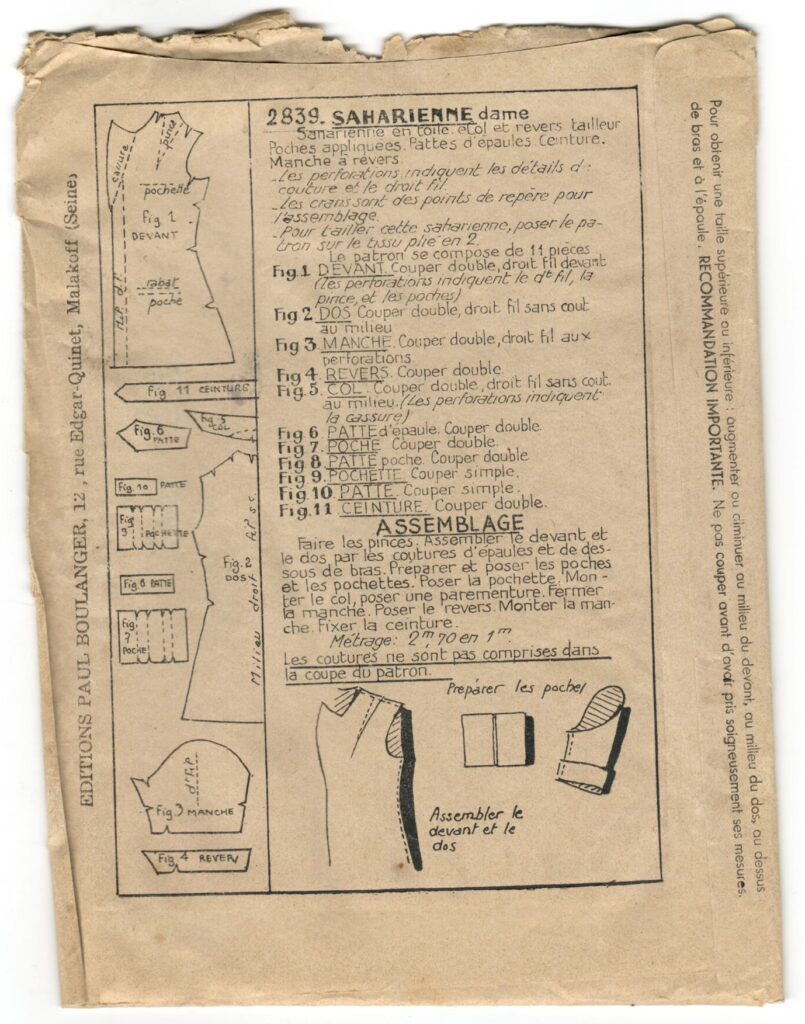 2839. SAHARIENNE dame
Saharienne en toile. Col et revers tailleur
Poches appliquées. Pattes d'épaules. Ceinture.
Manche à revers.
- Les perforations indiquent les détails de
couture et le droit fil.
- Les crans sont des points de repère pour
l'assemblage.
- Pour tailler cette saharienne, poser le pa-
tron sur le tissu plié en 2.
Le patron se compose de 11 pièces
Fig.1 DEVANT. Couper double, droit fil devant
(Les perforations indiquent le dt fil, la
pince, et les poches)
Fig 2 DOS Couper double, droit fil sans cout
au milieu
Fig 3 MANCHE. Couper double, droit fil aux
perforations.
Fig 4. REVERS. Couper double.
Fig.5. COL. Couper double, droit fil sans cout.
au milieu. (Les perforations indiquent
la cassure)
Fig 6 PATTE d'épaule. Couper double.
Fig 7 POCHE Couper double.
Fig 8 PATTE poche. Couper double
Fig 9. POCHETTE. Couper simple.
Fig.10. PATTE. Couper simple.
Fig.11 CEINTURE. Couper double.
ASSEMBLAGE
Faire les pinces. Assembler le devant et
le dos par les coutures d'épaules et de des-
sous de bras. Préparer et poser les poches
et les pochettes. Poser la pochette. Mon-
ter le col, poser une parementure. Fermer
la manche. Poser le revers. Monter la man-
che. Fixer la ceinture.
Métrage: 2m,70 en 1m.
Les coutures ne sont pas comprises dans
la coupe du patron.
Préparer les poches
Assembler le
devant et le
dos
cassure
pince
pochette
Fig 1
DEVANT
rabat
poche
Fig 11 CEINTURE
Fig.6
PATTE
Fig 5
COL
Fig 10 PATTE
Fig
9 POCHETTE
Fig 8 PATTE
Fig.
7
POCHE
Fig.2
DOS
Milieu droit fil P s.c.
d'fil P
Fig.3 MANCHE
Fig 4 REVERS
EDITIONS PAUL BOULANGER, 12, rue Edgar-Quinet, Malakoff (Seine)
Pour obtenir une taille supérieure ou inférieure : augmenter ou diminuer au milieu du devant, au milieu du dos, au dessus
de bras et à l'épaule. RECOMMANDATION IMPORTANTE. Ne pas couper avant d'avoir pris soigneusement ses mesures.